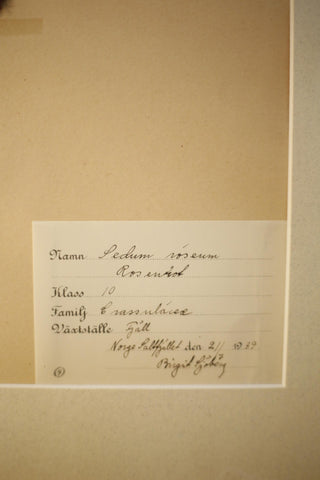 Namn Sedum róseum
Rosenrot
Klass 10
Familj Crassuláceæ
Växtställe Fjäll
Norge Saltfjället den 2/7 1939
Birgit Sjöberg